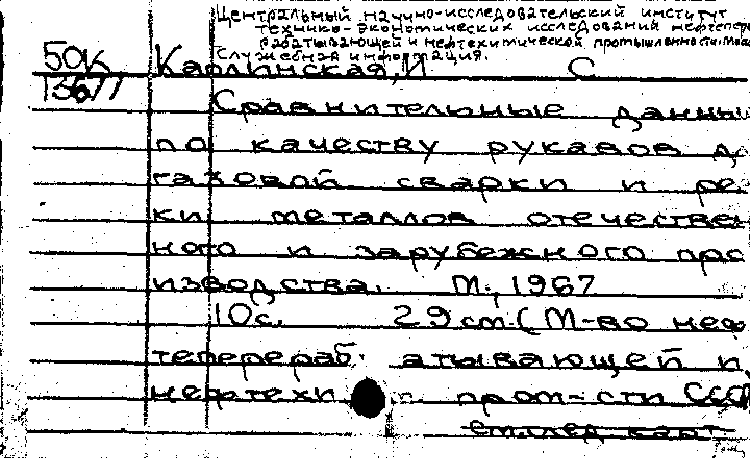 Центральный научно-исследовательский институт
технико-экономических исследований нефтепере
рабатывающей и нефтехимической промышленности. Мос
Служебная информация.
50К Каолинская, И С
13677
Сравнительные данны
по качеству рукавов д
газовой сварки и рез
ки металлов отечествен
ного и зарубежного про
изводства. М., 1967
10с. 29 см. (М-во неф
теперераб. атывающей и
нефтехи п. пром-сти СССР